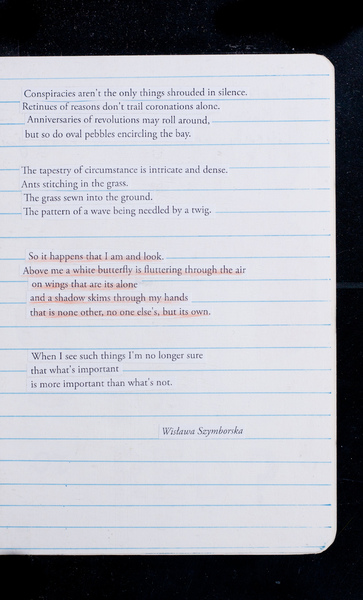 Conspiracies aren't the only things shrouded in silence.
Retinues of reasons don't trail coronations alone.
Anniversaries of revolutions may roll around,
but so do oval pebbles encircling the bay.
The tapestry of circumstance is intricate and dense.
Ants stitching in the grass.
The grass sewn into the ground.
The pattern of a wave being needled by a twig.
So it happens that I am and look.
Above me a white butterfly is fluttering through the air
on wings that are its alone
and a shadow skims through my hands
that is none other, no one else's, but its own.
When I see such things I'm no longer sure
that what's important
is more important than what's not.
Wisława Szymborska